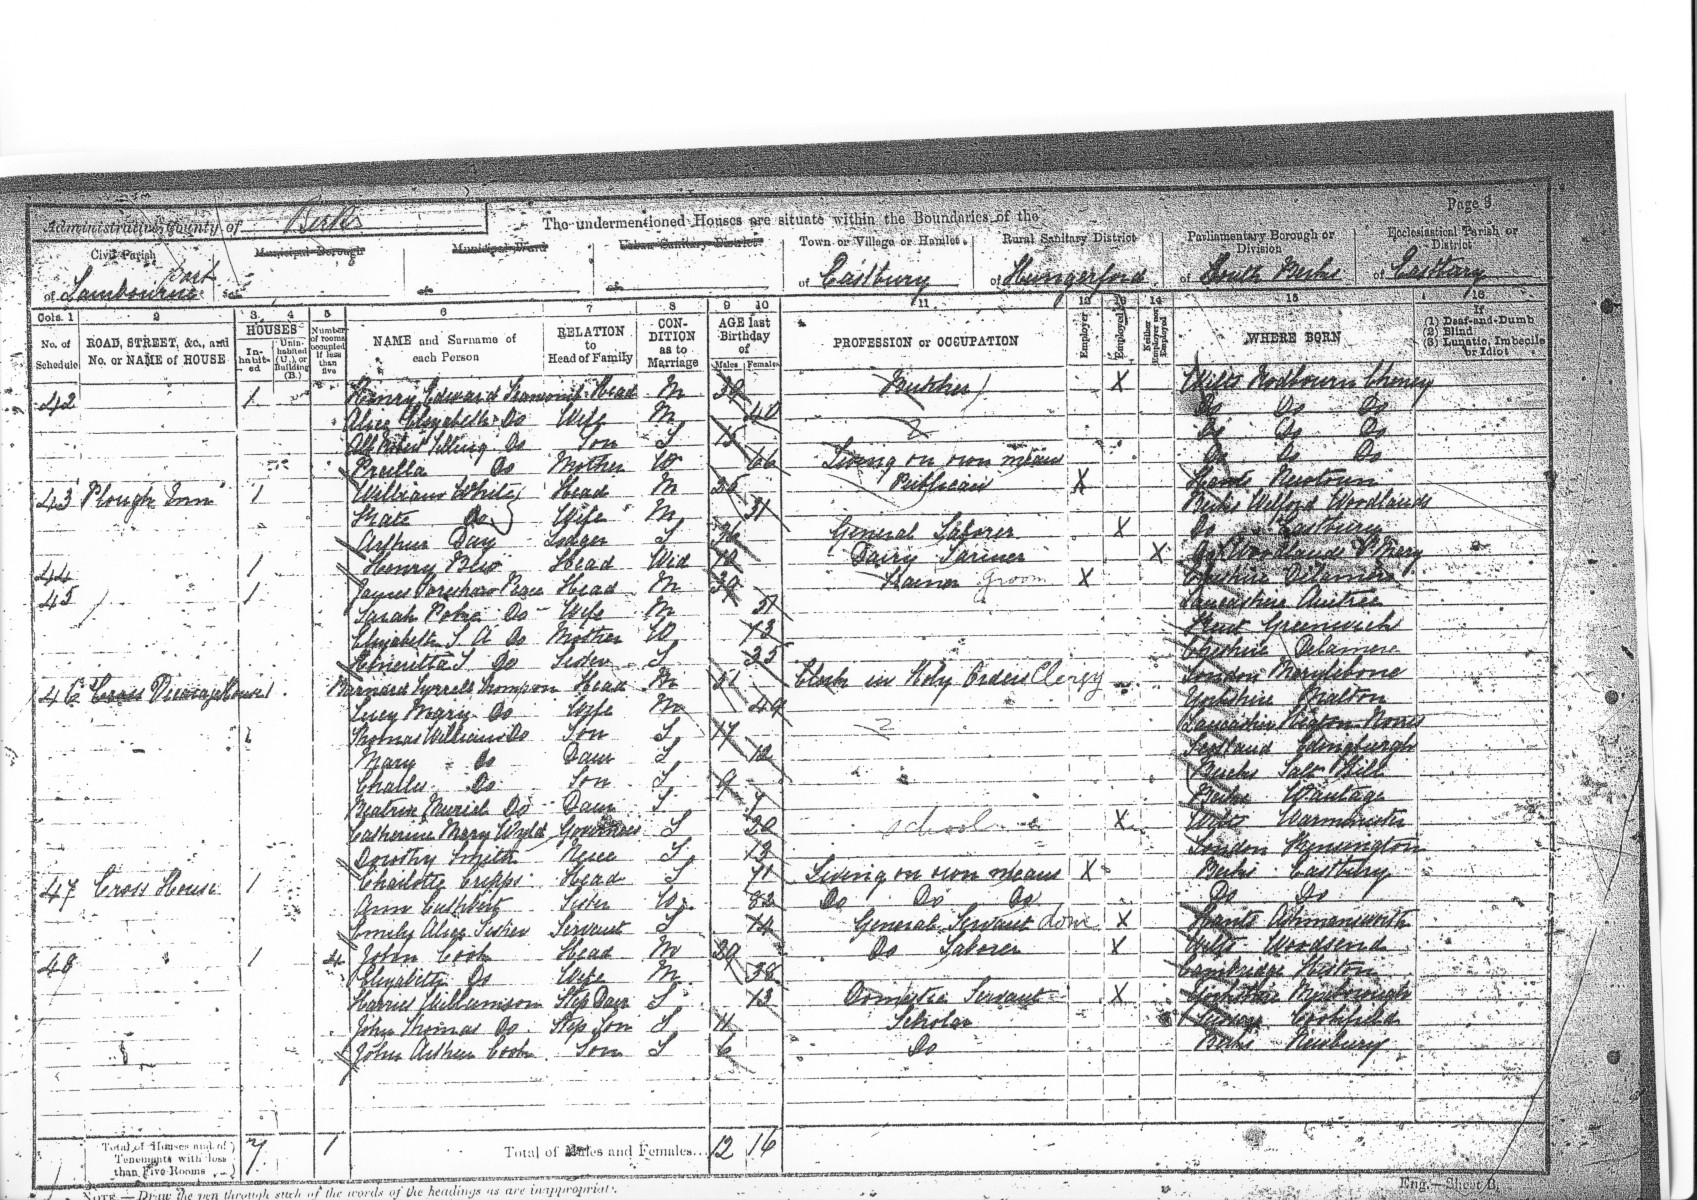 Page 9
Administrative County of Berks The undermentioned Houses are situate within the Boundaries of the
Civil Parish Municipal Borough Municipal Ward Urban Sanitary District Town or Village or Hamlet Rural Sanitary District Parliamentary Borough or Division Ecclesiastical Parish or District
of Lambourne Part of of of of Eastbury of Hungerford of South Berks of Eastbury
Cols. 1 2 3 4 5 6 7 8 9 10 11 12 13 14 15 16
No. of Schedule ROAD, STREET, &c., and No. or NAME of HOUSE HOUSES Inhabited Uninhabited (U.), or Building (B.) Number of rooms occupied if less than five NAME and Surname of each Person RELATION to Head of Family CONDITION as to Marriage AGE last Birthday of Males Females PROFESSION or OCCUPATION Employer Employed Neither Employer nor Employed WHERE BORN If (1) Deaf-and-Dumb (2) Blind (3) Lunatic, Imbecile or Idiot
42 1 Henry Edward Head M 39 Butcher X Wilts Rodbourn Cheney
Alice Elizabeth Do Wife M 40 Do Do Do
Do Son S 15 Do Do Do
Do Mother W 66 Living on own means Do Do Do
43 Plough Inn 1 William White Head M Publican X Hants Newtown
Kate Do Wife M 31 Berks Welford Woodlands
Arthur Day Lodger S 36 General Laborer X Do Eastbury
44 1 Henry Head Wid Dairy Farmer X Do Woodlands St Mary
45 1 James Head M 39 Trainer Groom X Cheshire Delamere
Sarah Do Wife M 31 Lancashire Aintree
Elizabeth S. A Do Mother W 73 Kent Greenwich
Henrietta S Do Sister S 35 Cheshire Delamere
46 Cross Vicarage House 1 Barnard Tyrrell Thompson Head M 51 Clerk in Holy Orders Clergy London Marylebone
Lucy Mary Do Wife M 49 Yorkshire Malton
Thomas William Do Son S 17 Lancashire
Mary Do Daur S 12 Scotland Edingburgh
Charles Do Son S 9 Bucks Salt Hill
Beatrix Muriel Do Daur S 7 Berks Wantage
Catherine Mary Wyld Governess S 20 School X Wilts Warminster
Dorothy Smith Niece S 13 London Kensington
47 Cross House 1 Charlotte Cripps Head S 71 Living on own means X Berks Eastbury
Ann Cuthbert Sister W 82 Do Do Do Do Do
Emily Alice Fisher Servant S 14 General Servant Dom X Hants Ashmansworth
48 1 4 John Cook Head M 39 Do Laborer X Wilts Woodsend
Elizabeth Do Wife M 38 Cambridge Histon
Harriet Williamson Step Daur S 13 Domestic Servant X Yorkshire Mexborough
John Thomas Do Step Son S 11 Scholar Cockfield
John Arthur Cook Son S 6 Do Berks Newbury
Total of Houses and of Tenements with less than Five Rooms 7 1 Total of Males and Females... 12 16
NOTE.—Draw the pen through such of the words of the headings as are inappropriate.
Eng.—Sheet B.